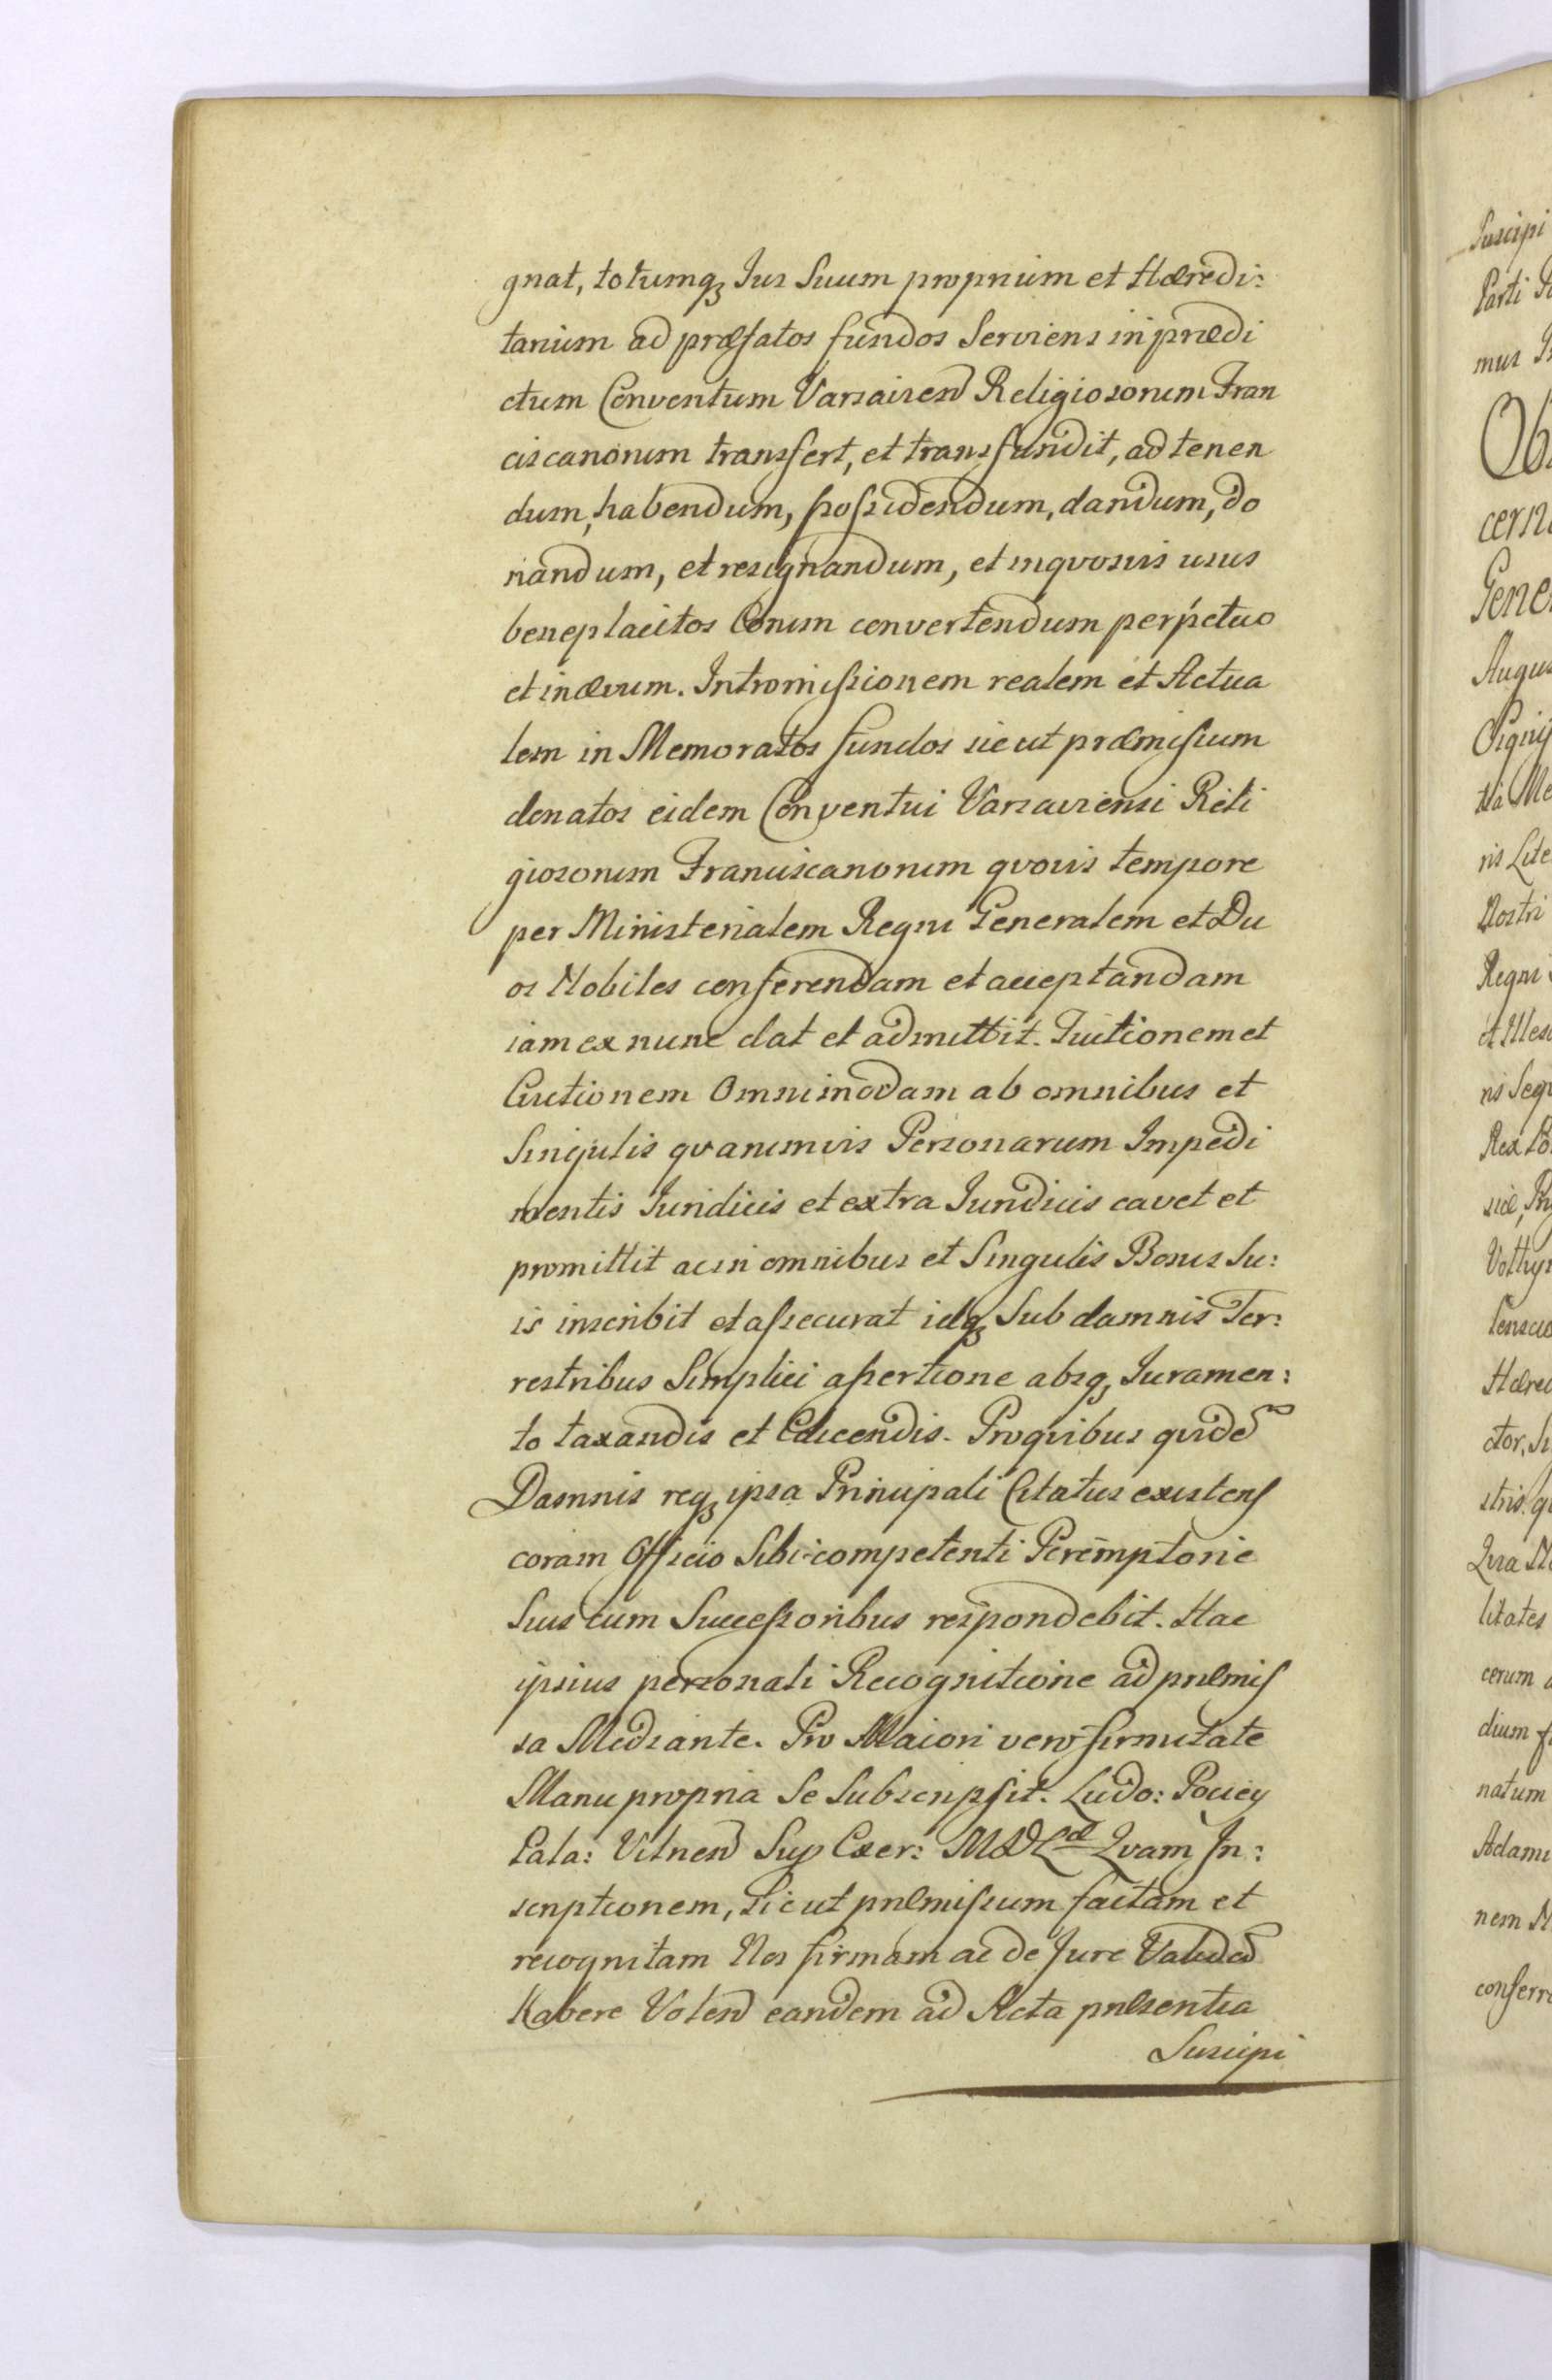 gnat, totumq₃ Jus Suum proprium et Hæredi:
tarium ad præfatos fundos Serviens in prædi
ctum Conventum Varsavien Religiosorum Fran
ciscanorum transfert, et transfundit, ad tenen
dum, habendum, possidendum, dandum, do
nandum, et resignandum, et inqvosvis usus
beneplacitos Eorum convertendum perpetuo
et inævum. Intromissionem realem et Actua
lem in Memoratos fundos sicut præmissum
donatos eidem Conventui Varsaviensi Reli
giosorum Franciscanorum qvovis tempore
per Ministerialem Regni Generalem et Du
os Nobiles conferendam et acceptandam
iam ex nunc dat et admittit. Tuitionem et
Evictionem Omnimodam ab omnibus et
Singulis qvarumvis Personarum Impedi
mentis Juridicis et extra Juridicis cavet et
promittit ac in omnibus et Singulis Bonis Su:
is inscribit et assecurat idq₃ Sub damnis Ter:
restribus Simplici assertione absq₃ Juramen:
to taxandis et Edicendis. Proqvibus qvide
Damnis req₃ ipsa Principali Citatus existens
coram Officio Sibi competenti Peremptorie
Suis cum Successoribus respondebit. Hac
ipsius personali Recognitione ad præmis
sa Mediante. Pro Maiori vero firmitate
Manu propria Se Subscripsit. Ludo: Pociey
Pala: Vilnen Sup Exer: MDLæ Qvam In:
scriptionem, Sicut præmissum factam et
recognitam Nos firmam ac de Jure Valided
habere Volen eandem ad Acta præsentia
Suscipi
Suscipi
Parti
mus
Ob
cern
Gene
Augus
ris Lite
Nostri
Regni
Rex Po
Hæred
ctor, Su
litates
cerum
dium
natum
Adami
nem
conferr